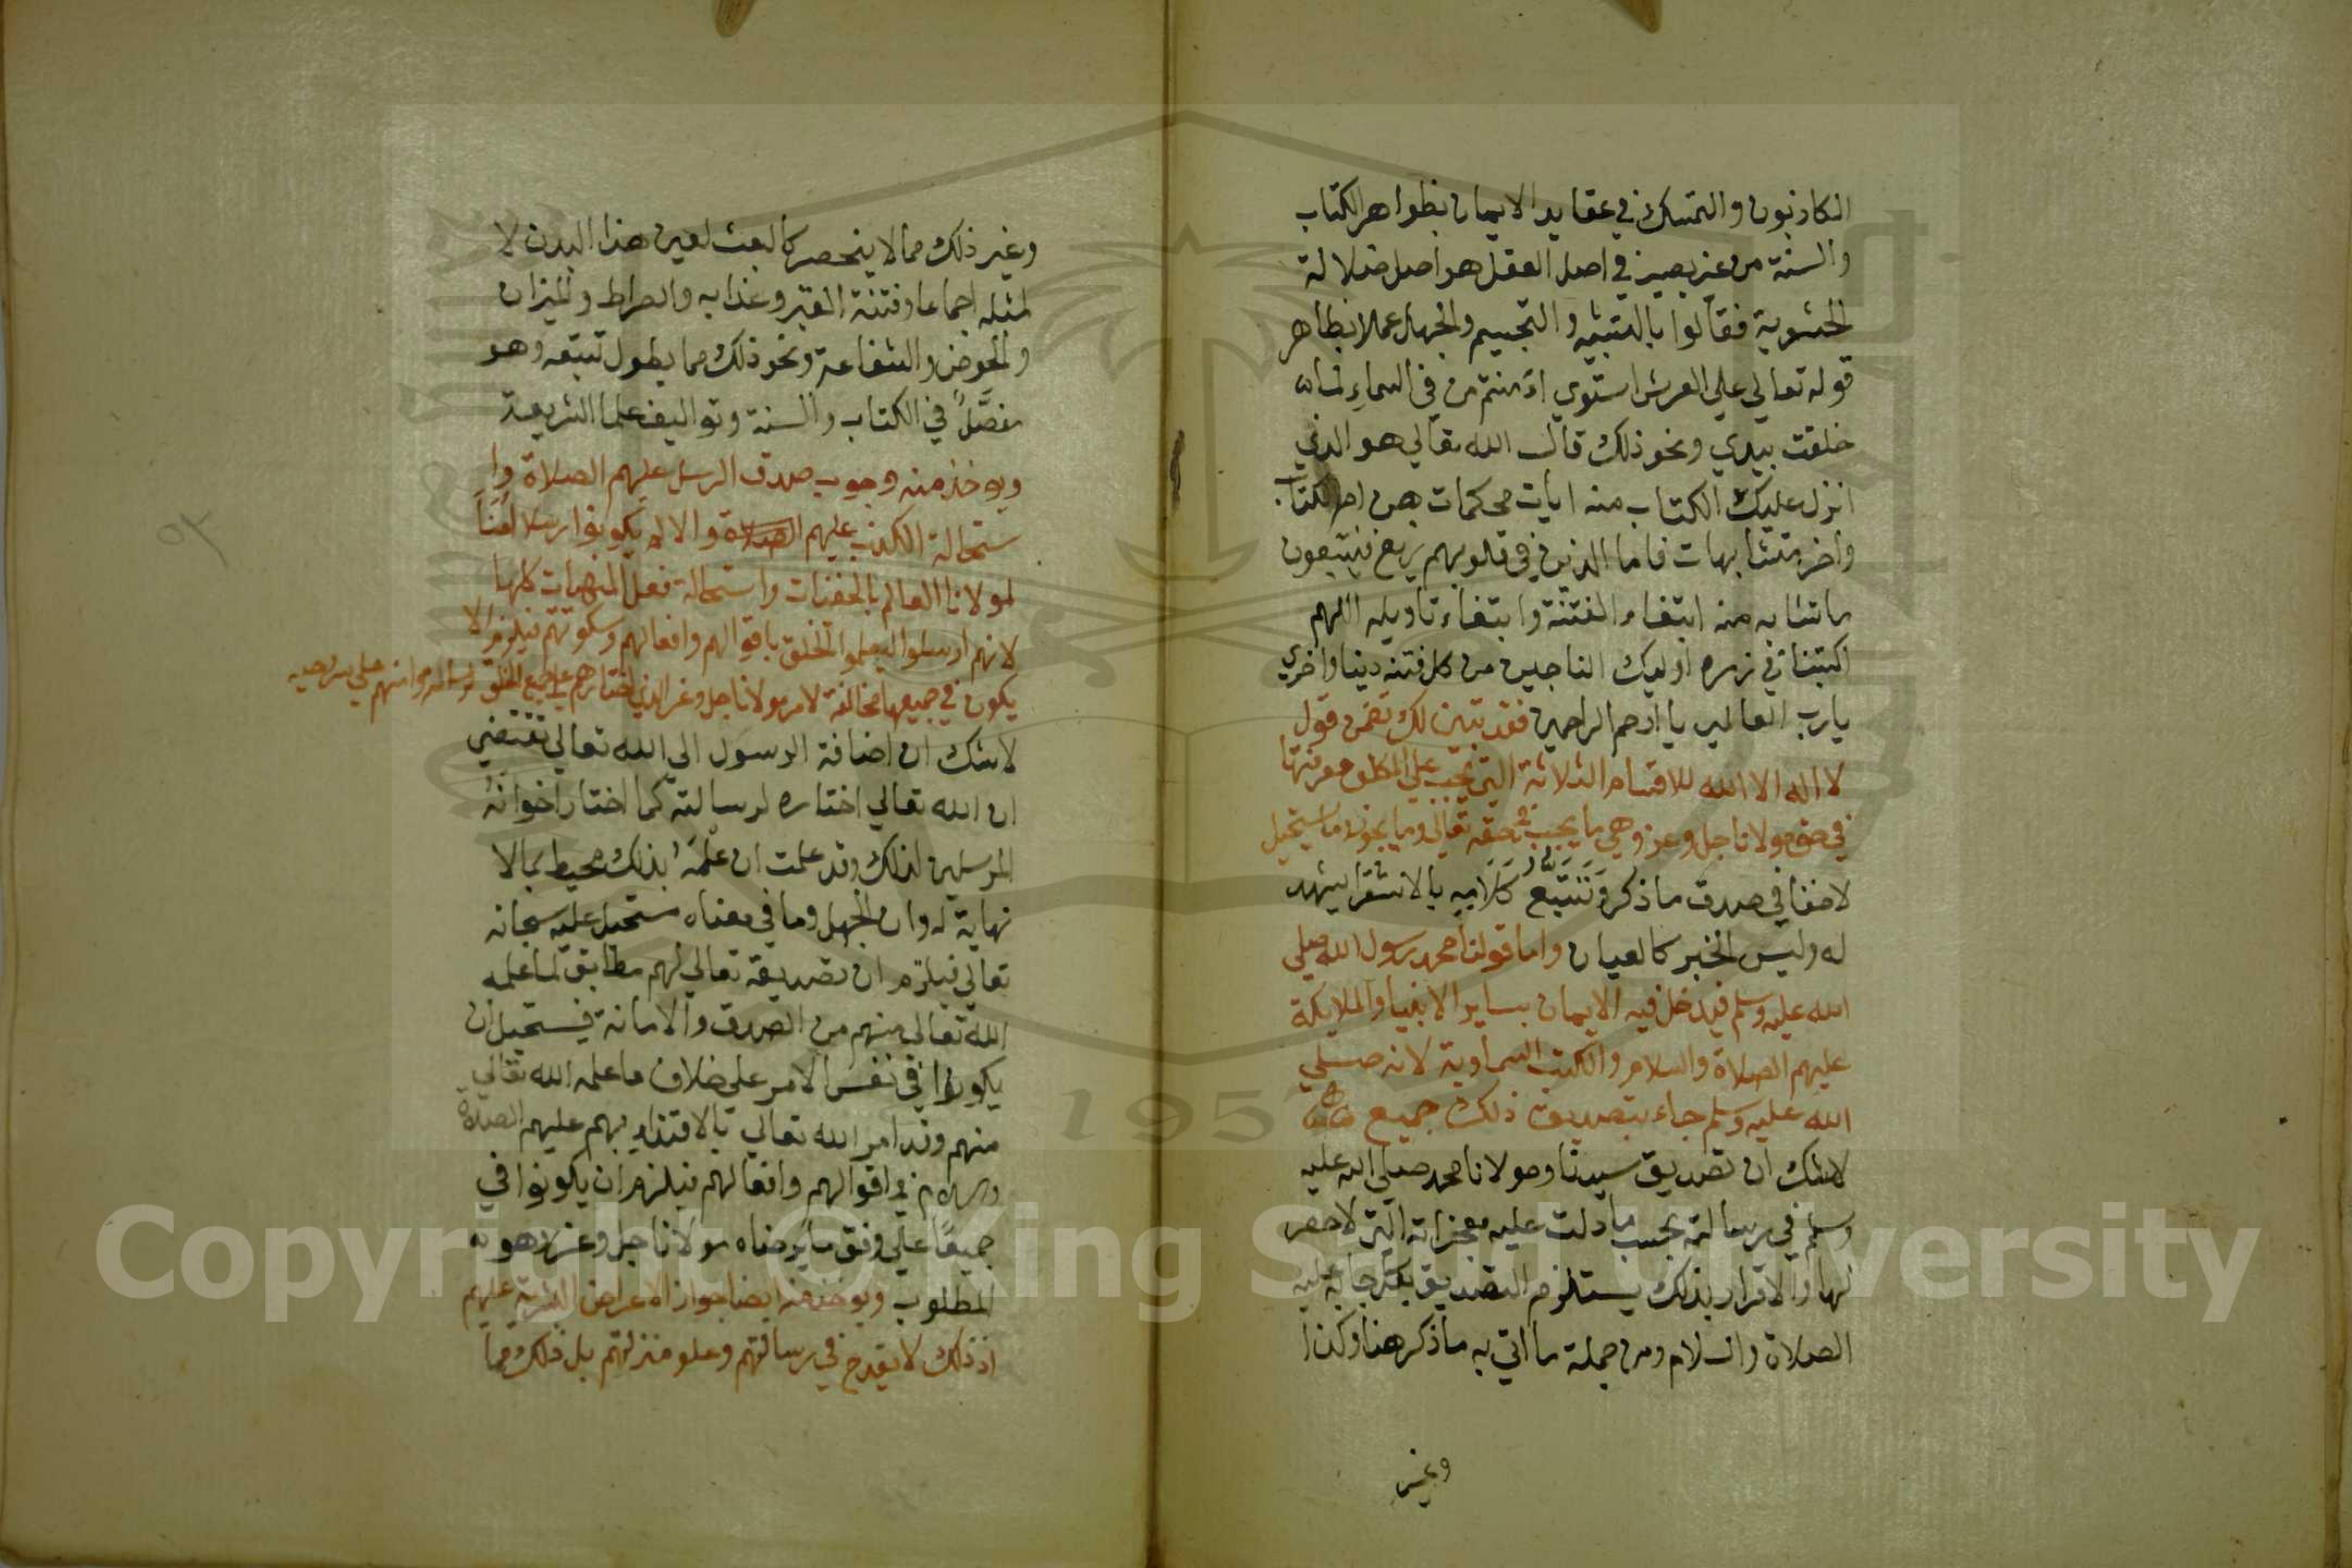 الكاذبون والتمسك في عقايد الايمان بظواهر الكتاب
والسنة من غير بصيرة في اصل العقل هو اصل ضلالة
الحشوية فقالوا بالتشبيه والتجسيم والجهة عملا بظاهر
قوله تعالي علي العرش استوي اءمنتم من في السماء لما
خلقت بيدي ونحو ذلك قال الله تعالي هو الذي
انزل عليك الكتاب منه ايات محكمات هن ام الكتاب
واخر متشابهات فاما الذين في قلوبهم زيغ فيتبعون
ما تشابه منه ابتغاء الفتنة وابتغاء تاويله اللهم
اكتبنا في زمره اوليك الناجين من كل فتنه دينا واخري
يارب العالمين يا ارحم الراحمين فقد تبين لك تضمن قول
لا اله الا الله للاقسام الثلاثة التي يجب علي المكلف معرفتها
في حق مولانا جل وعز وهي ما يجب في حقه تعالي وما يجوز وما يستحيل
لا خفا في صدق ما ذكر وتتبع كلامه بالاستقرا يشهد
له وليس الخبر كالعيان واما قولنا محمد رسول الله صلي
الله عليه وسلم فيدخل فيه الايمان بساير الانبيا والملايكة
عليهم الصلاة والسلام والكتب السماوية لانه صلي
الله عليه وسلم جاء بتصديق ذلك جميع
لاشك ان تصديق سيدنا ومولانا محمد صلي الله عليه
وسلم في رسالته بحسب ما دلت عليه معجزاته التي لا حصر
لها والاقرار بذلك يستلزم التصديق بكل ما جا به عليه
الصلاة والسلام ومن جملة ما اتي به ما ذكر هنا وكذا
وغير
وغير ذلك مما لا ينحصر كالبعث لعين هذا البدن لا
لمثله اجماعا وفتنة القبر وعذابه والصراط والميزان
والحوض والشفاعة ونحو ذلك مما يطول تتبعه وهو
مفصل في الكتاب والسنة وتواليف علما الشريعة
ويوخذ منه وجوب صدق الرسل عليهم الصلاة وا
ستحالة الكذب عليهم الصلاة والا لم يكونوا رسلا امنا
لمولانا العالم بالخفيات واستحالة فعل المنهيات كلها
لانهم ارسلوا ليعلموا الخلق باقوالهم وافعالهم وسكوتهم فيلزم الا
يكون في جميعها مخالفة لامر مولانا جل وعز الذي اختارهم علي جميع الخلق وامنهم علي سر وحيه
لاشك ان اضافة الرسول الي الله تعالي تقتضي
ان الله تعالي اختاره لرسالته كما اختار اخوانه
المرسلين لذلك وقد علمت ان علمه بذلك محيط بمالا
نهاية له وان الجهل وما في معناه مستحيل عليه سبحانه
تعالي فيلزم ان تصديقه تعالي لهم مطابق لما علمه
الله تعالي منهم من الصدق والامانة فيستحيل ان
يكونوا في نفس الامر علي خلاف ما علم الله تعالي
منهم وقد امر الله تعالي بالاقتداء بهم عليهم الصلاة
والسلام في اقوالهم وافعالهم فيلزم ان يكونوا في
جميعا علي وفق ما يرضاه مولانا جل وعز وهو
المطلوب ويوخذ منه ايضا جواز الاعراض البشرية عليهم
اذ ذلك لا يقدح في رسالتهم وعلو منزلتهم بل ذلك مما
Copyright © King Saud University
195